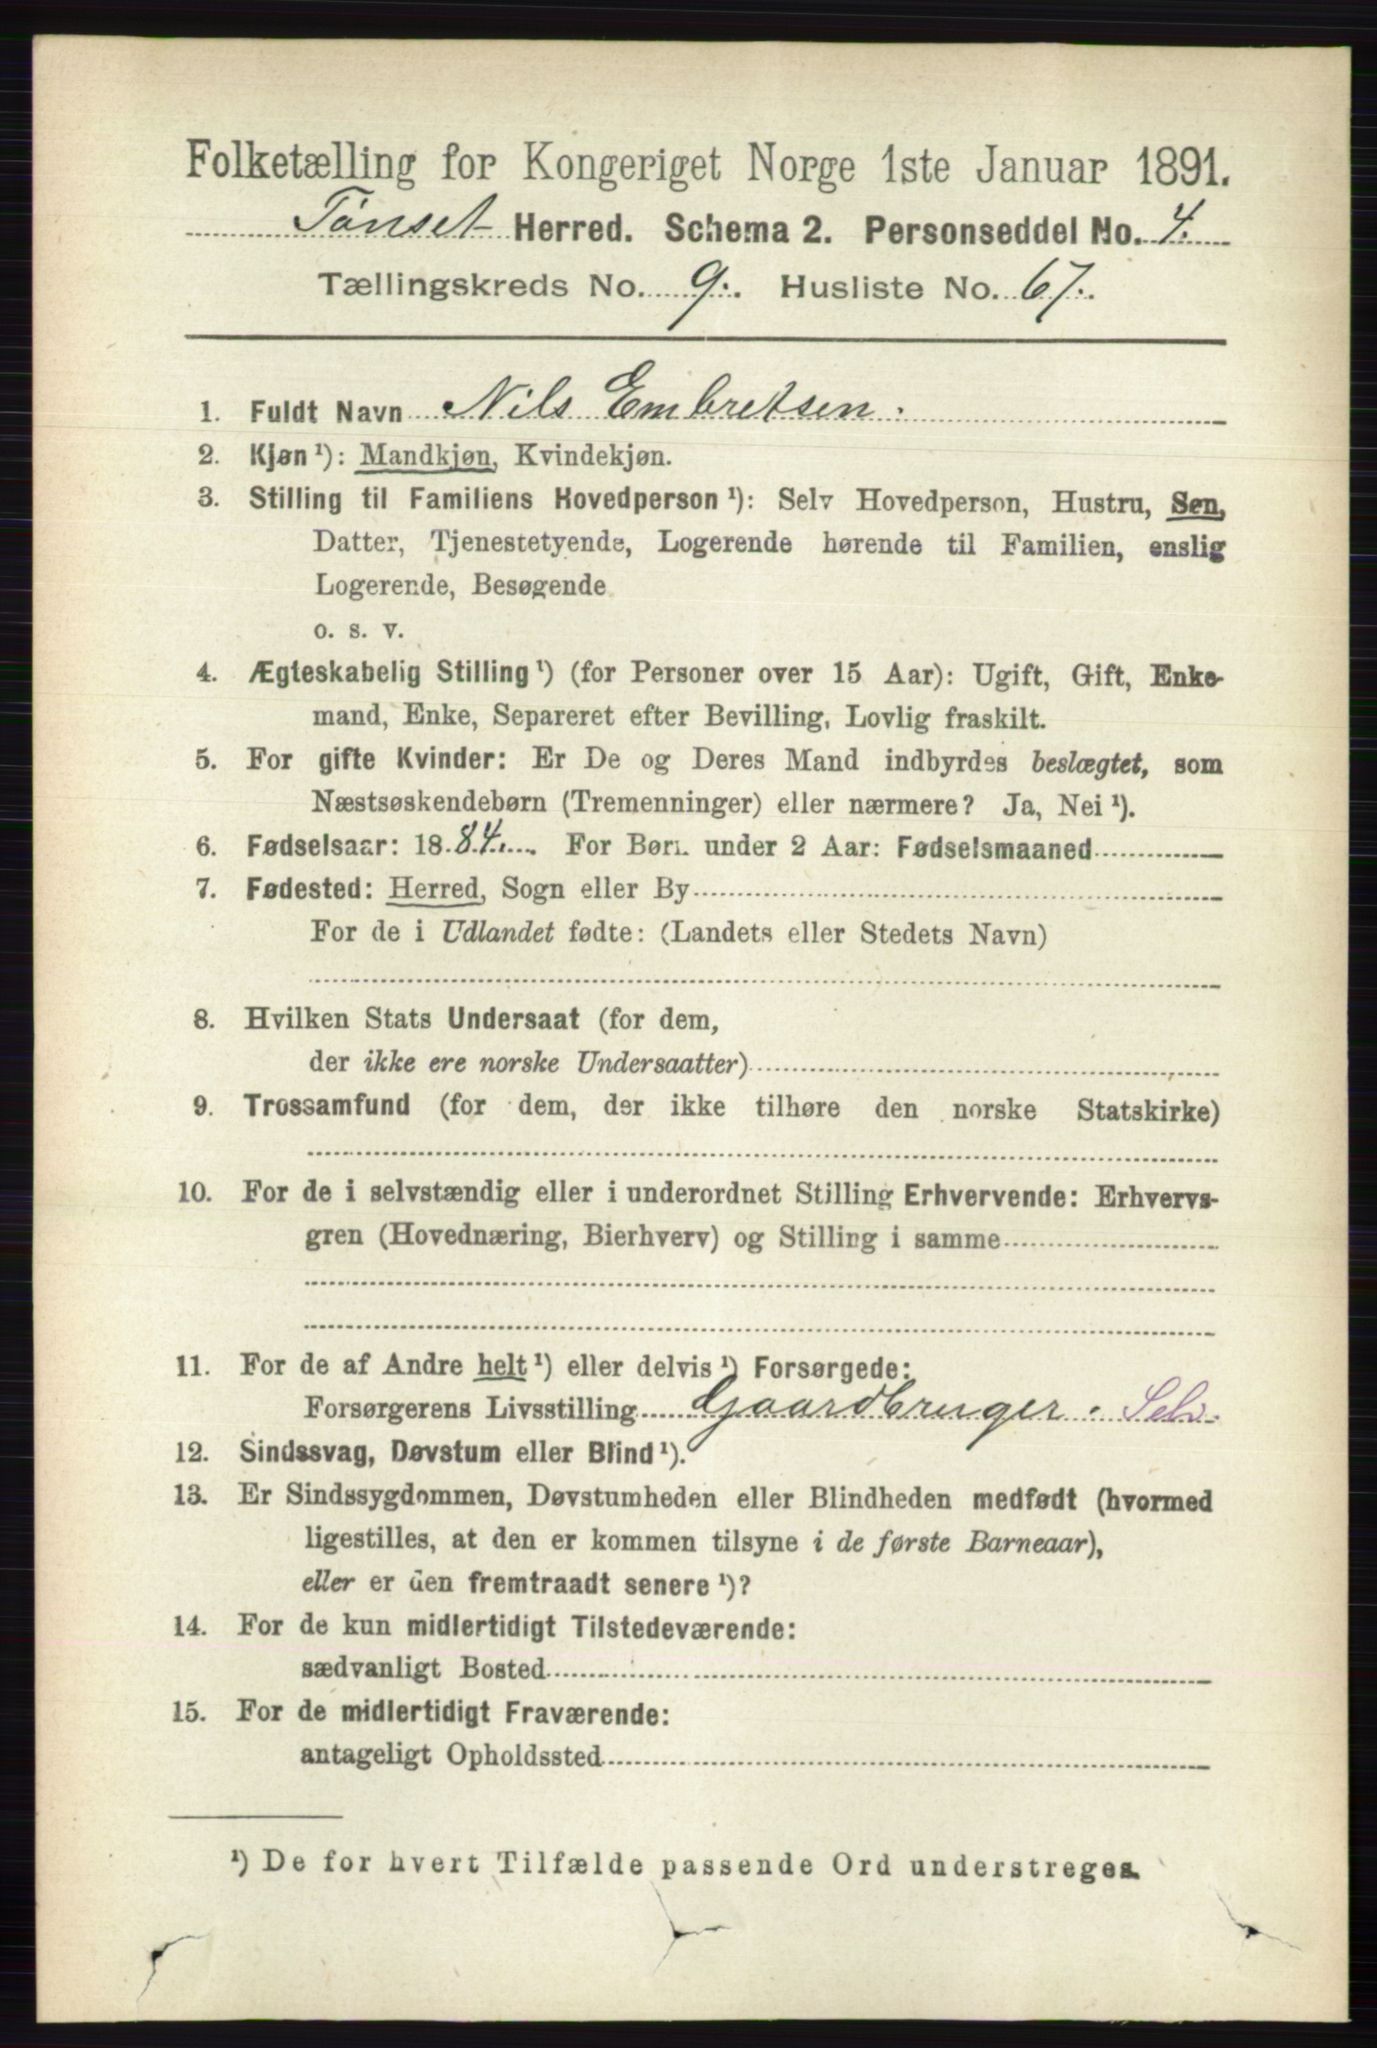 Folketælling for Kongeriget Norge 1ste Januar 1891.
Tönset Herred. Schema 2. Personseddel No. 4.
Tællingskreds No. 9. Husliste No. 67.
1. Fuldt Navn Nils Embretsen.
2. Kjøn ¹): Mandkjøn, Kvindekjøn.
3. Stilling til Familiens Hovedperson ¹): Selv Hovedperson, Hustru, Søn,
Datter, Tjenestetyende, Logerende hørende til Familien, enslig
Logerende, Besøgende
o. s. v.
4. Ægteskabelig Stilling ¹) (for Personer over 15 Aar): Ugift, Gift, Enke-
mand, Enke, Separeret efter Bevilling, Lovlig fraskilt.
5. For gifte Kvinder: Er De og Deres Mand indbyrdes beslægtet, som
Næstsøskendebørn (Tremenninger) eller nærmere? Ja, Nei ¹).
6. Fødselsaar: 1884. For Børn under 2 Aar: Fødselsmaaned
7. Fødested: Herred, Sogn eller By
For de i Udlandet fødte: (Landets eller Stedets Navn)
8. Hvilken Stats Undersaat (for dem,
der ikke ere norske Undersaatter)
9. Trossamfund (for dem, der ikke tilhøre den norske Statskirke)
10. For de i selvstændig eller i underordnet Stilling Erhvervende: Erhvervs-
gren (Hovednæring, Bierhverv) og Stilling i samme
11. For de af Andre helt ¹) eller delvis ¹) Forsørgede:
Forsørgerens Livsstilling Gaardbruger. Selv.
12. Sindssvag, Døvstum eller Blind ¹).
13. Er Sindssygdommen, Døvstumheden eller Blindheden medfødt (hvormed
ligestilles, at den er kommen tilsyne i de første Barneaar),
eller er den fremtraadt senere ¹)?
14. For de kun midlertidigt Tilstedeværende:
sædvanligt Bosted
15. For de midlertidigt Fraværende:
antageligt Opholdssted
¹) De for hvert Tilfælde passende Ord understreges.